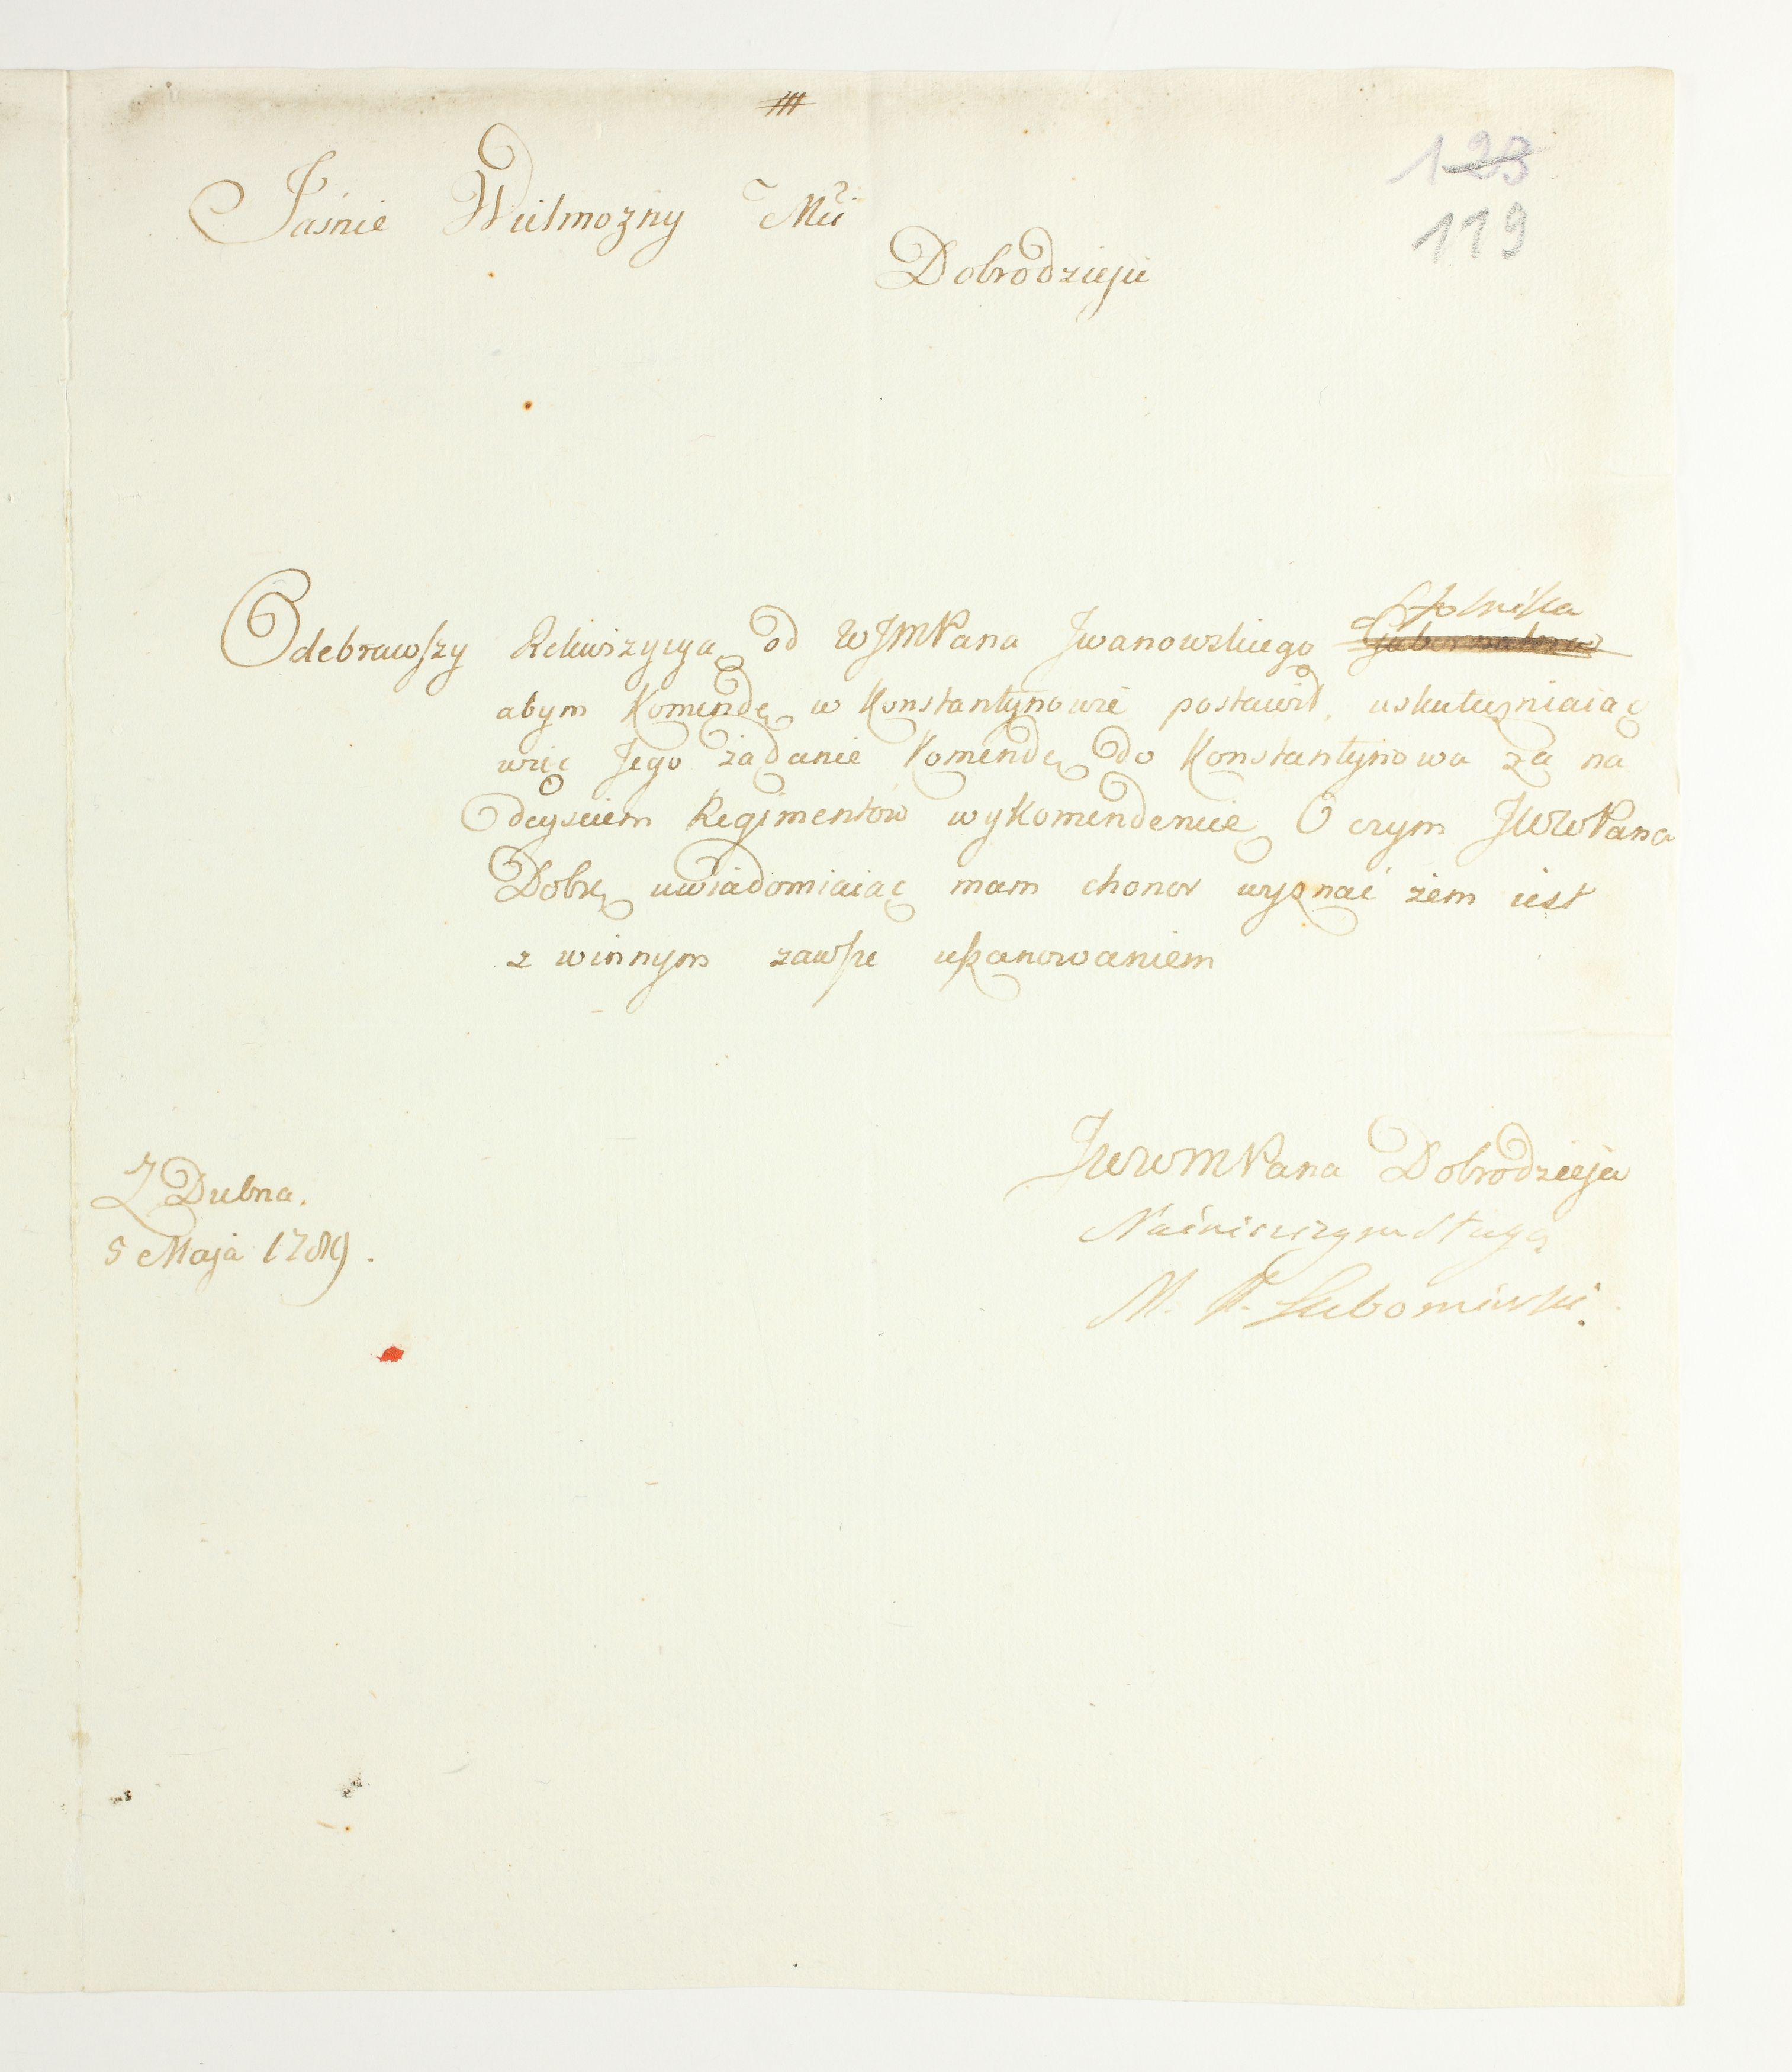 123
119
Jaśnie Wielmozny Mci
Dobrodzieju
Stolnika
Odebrawszy Rekwizycyą od WJMPana Jwanowskiego Gubernatora
abym Komendę w Konstantynowie postawił, uskuteczniaiąc
więc Jego żądanie Komendę do Konstantynowa za na
deyściem Regimentow wykomenderuię O czym JWWPana
Dobrę uwiadomiaiąc mam chonor wyznać żem iest
z winnym zawsze uszanowaniem
JWWMPana Dobrodzieja
Z Dubna.
5 Maja 1789.
Nayniższym sługą
M. X. Lubomirski.